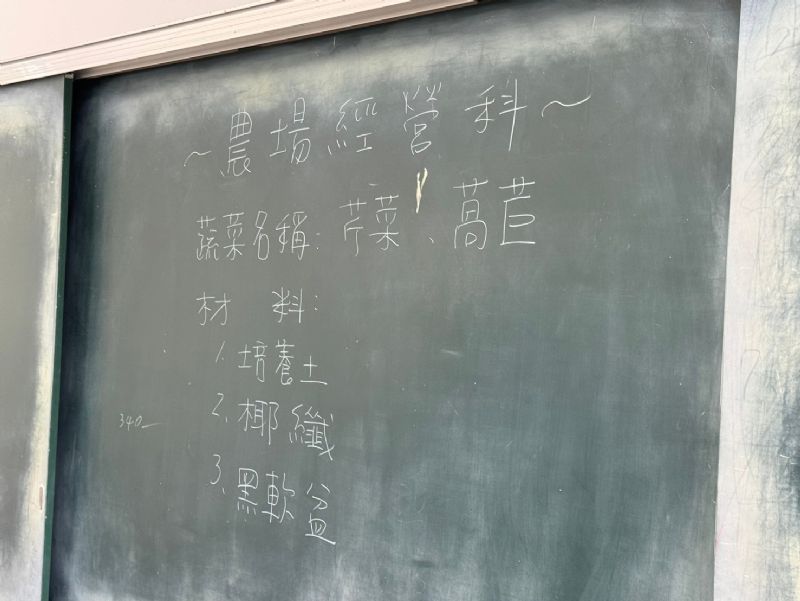 ~農場經營科~
蔬菜名稱:芹菜、萵苣
材 料:
1.培養土
2.椰纖
340
3.黑軟盆